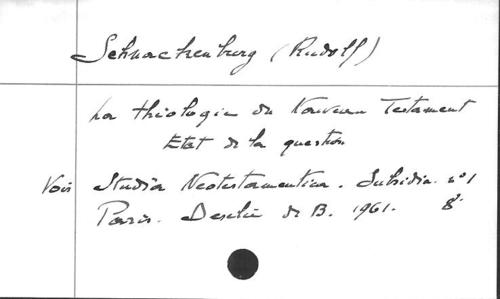 Schnackenburg (Rudolf)
La théologie du Nouveau Testament
Etat de la question
Voir Studia Neotestamentica. Subsidia. n° 1
Paris. Desclée de B. 1961. 8°